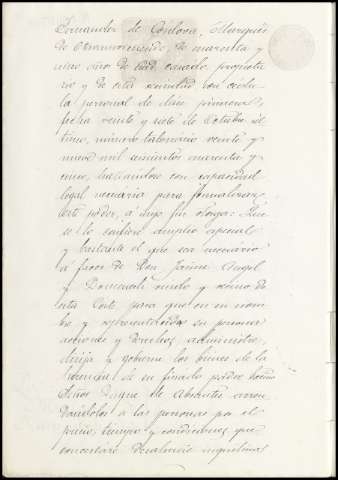 Fernandez de Córdova, Marqués
de                  , de cuarenta y
cinco años de edad, casado, propieta
rio y de esta vecindad con cédu
la personal de clase primera,
fecha veinte y siete de Octubre úl
timo, número talonario veinte y
nueve mil                cuarenta y
cinco, hallándose con capacidad
legal necesaria para formalizar
este poder, á cuyo fin otorga: Que
se lo confiere amplio especial
y bastante el que sea necesario
á favor de Don Jaime Angel
y                  y vecino de
esta Corte para que en su nom
bre y representación de su persona
acciones y derechos, administre,
dirija y gobierne los bienes de la
herencia de su finado padre
Señor Duque de Abrantes arren
dándolos á las personas por el
precio, tiempo y condiciones que
concertare